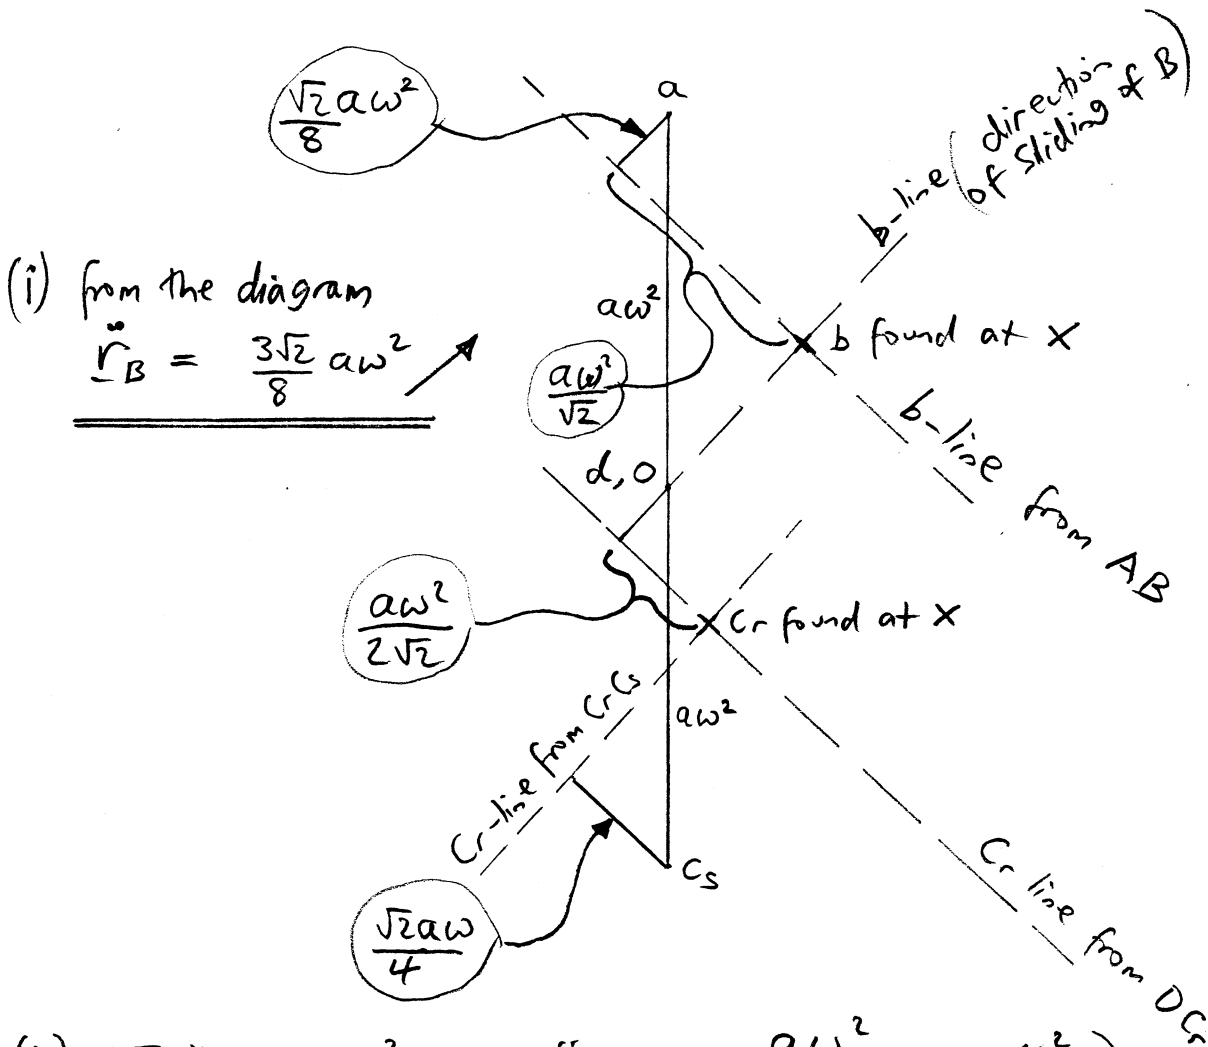 a
√2/8 aω²
b-line (direction
of sliding of B)
(i) from the diagram
r̈_B = 3√2/8 aω²
aω²
b found at X
aω²/√2
b-line from AB
d, o
aω²/2√2
Cr found at X
Cr-line from CrCs
aω²
Cs
Cr line from DCr
√2aω/4